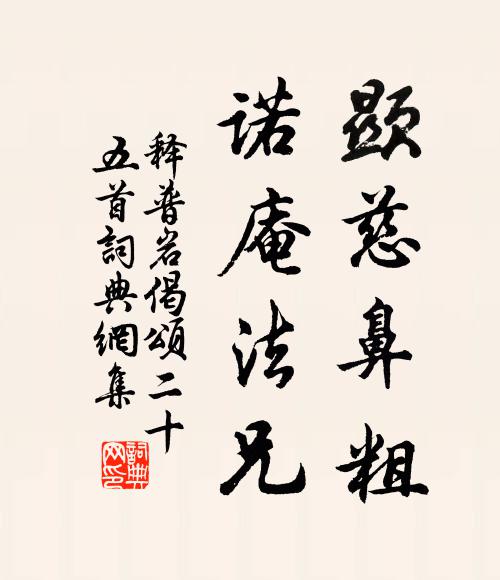 顯慈鼻粗
諾庵法兄
釋普岩偈頌二十
五首詞典網集
詞典网印